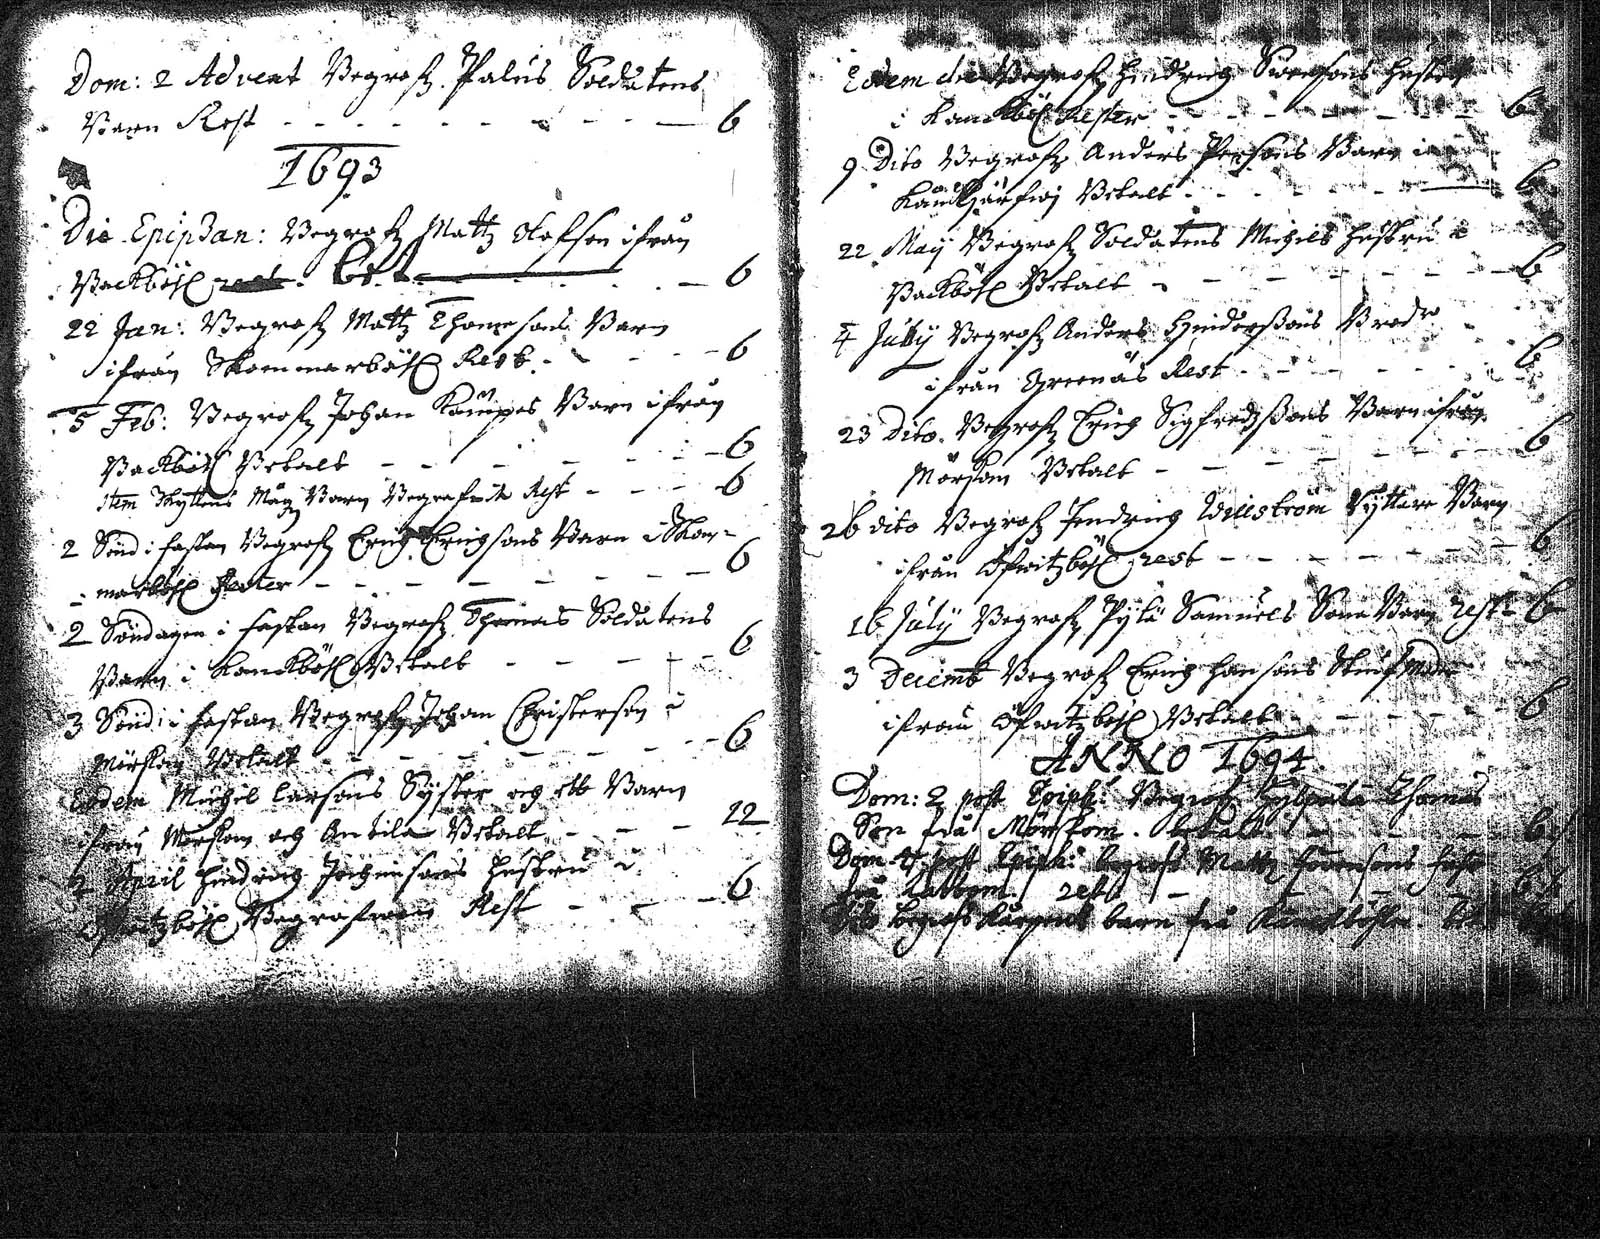 Dom: 2 Advent Begrofz Palus Soldatens
Barn Rest 6
1693
Die Epiphan: Begrofz Mattz Olofson ifrån
Backböhl bet 6
22 Jan: Begrofz Mattz Thomesons Barn
ifrån Skommarböhl Rest 6
5 Feb: Begrofz Johan Kämpes Barn ifrån
Backböhl Betalt 6
Item Skyttens Måg Barn Begrafwit Rest 6
2 Sönd i fastan Begrofz Erich Erichsons Barn i Skom-
marböhl Rester 6
2 Söndagen i fastan Begrofz Thomas Soldatens
Barn i Kanckböhl Betalt 6
3 Sönd: i fastan Begrofz Johan Christerson i
Mörskom Betalt 6
Eodem Michel Larsons Syster och ett Barn
ifrån Mörskom och Antila Betalt 12
2 April Hindrich Jochimsons hustru i
Öfwitzböhl Begrafwen Rest 6
Eodem die Begrofz Hindrich Swensons hustru
i Kanckböhl Rester 6
9 Dito Begrofz Anders Persons Barn i
Betalt 6
22 Maij Begrofz Soldatens Michels hustru i
Backböhl Betalt 6
4 July Begrofz Anders Hinderssons Broder
ifrån Greenäs Rest 6
23 Dito Begrofz Erich Sigfredzsons Barn ifrån
Mörskom Betalt 6
26 dito Begrofz Hendrich Willström Ryttare Barn
ifrån Öfwitzböhl rest 6
16 July Begrofz Pylä Samuels Sone Barn rest 6
3 Decemb Begrofz Erich Hansons Stiufmoder
ifrån Öfwitzböhl Betalt 6
ANNO 1694
Dom: 2 post Epiph: Begrofz Thomas
Son frå Mörskom betalt 6
Dom 4 post Epiph: begrofz Mattz
frå rest 6
Dito begrofs barn frå